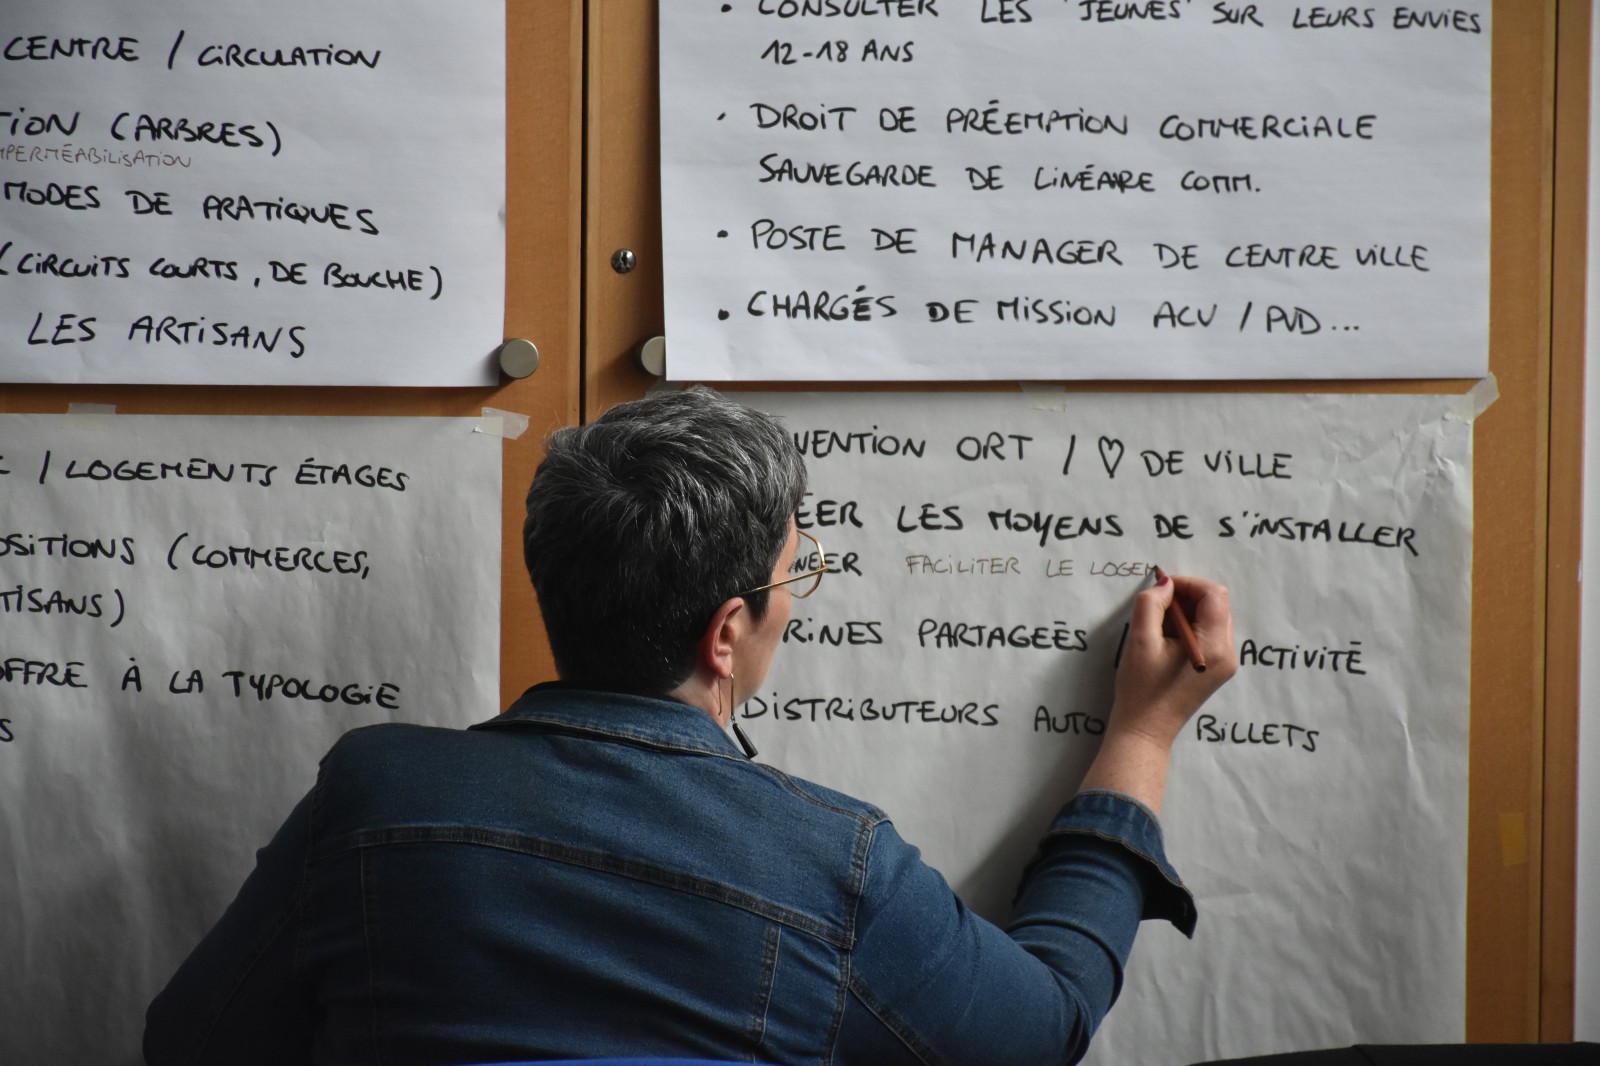 CENTRE / CIRCULATION
TION (ARBRES)
MPERMÉABILISATION
MODES DE PRATIQUES
(CIRCUITS COURTS, DE BOUCHE)
LES ARTISANS
• CONSULTER LES "JEUNES" SUR LEURS ENVIES
12-18 ANS
• DROIT DE PRÉEMPTION COMMERCIALE
SAUVEGARDE DE LINÉAIRE COMM.
• POSTE DE MANAGER DE CENTRE VILLE
• CHARGÉS DE MISSION ACV / PVD...
/ LOGEMENTS ÉTAGES
OSITIONS (COMMERCES,
TISANS)
OFFRE À LA TYPOLOGIE
S
VENTION ORT / ♡ DE VILLE
ÉER LES MOYENS DE S'INSTALLER
NEER FACILITER LE LOGEM
RINES PARTAGEÉS / ACTIVITÉ
DISTRIBUTEURS AUTO BILLETS